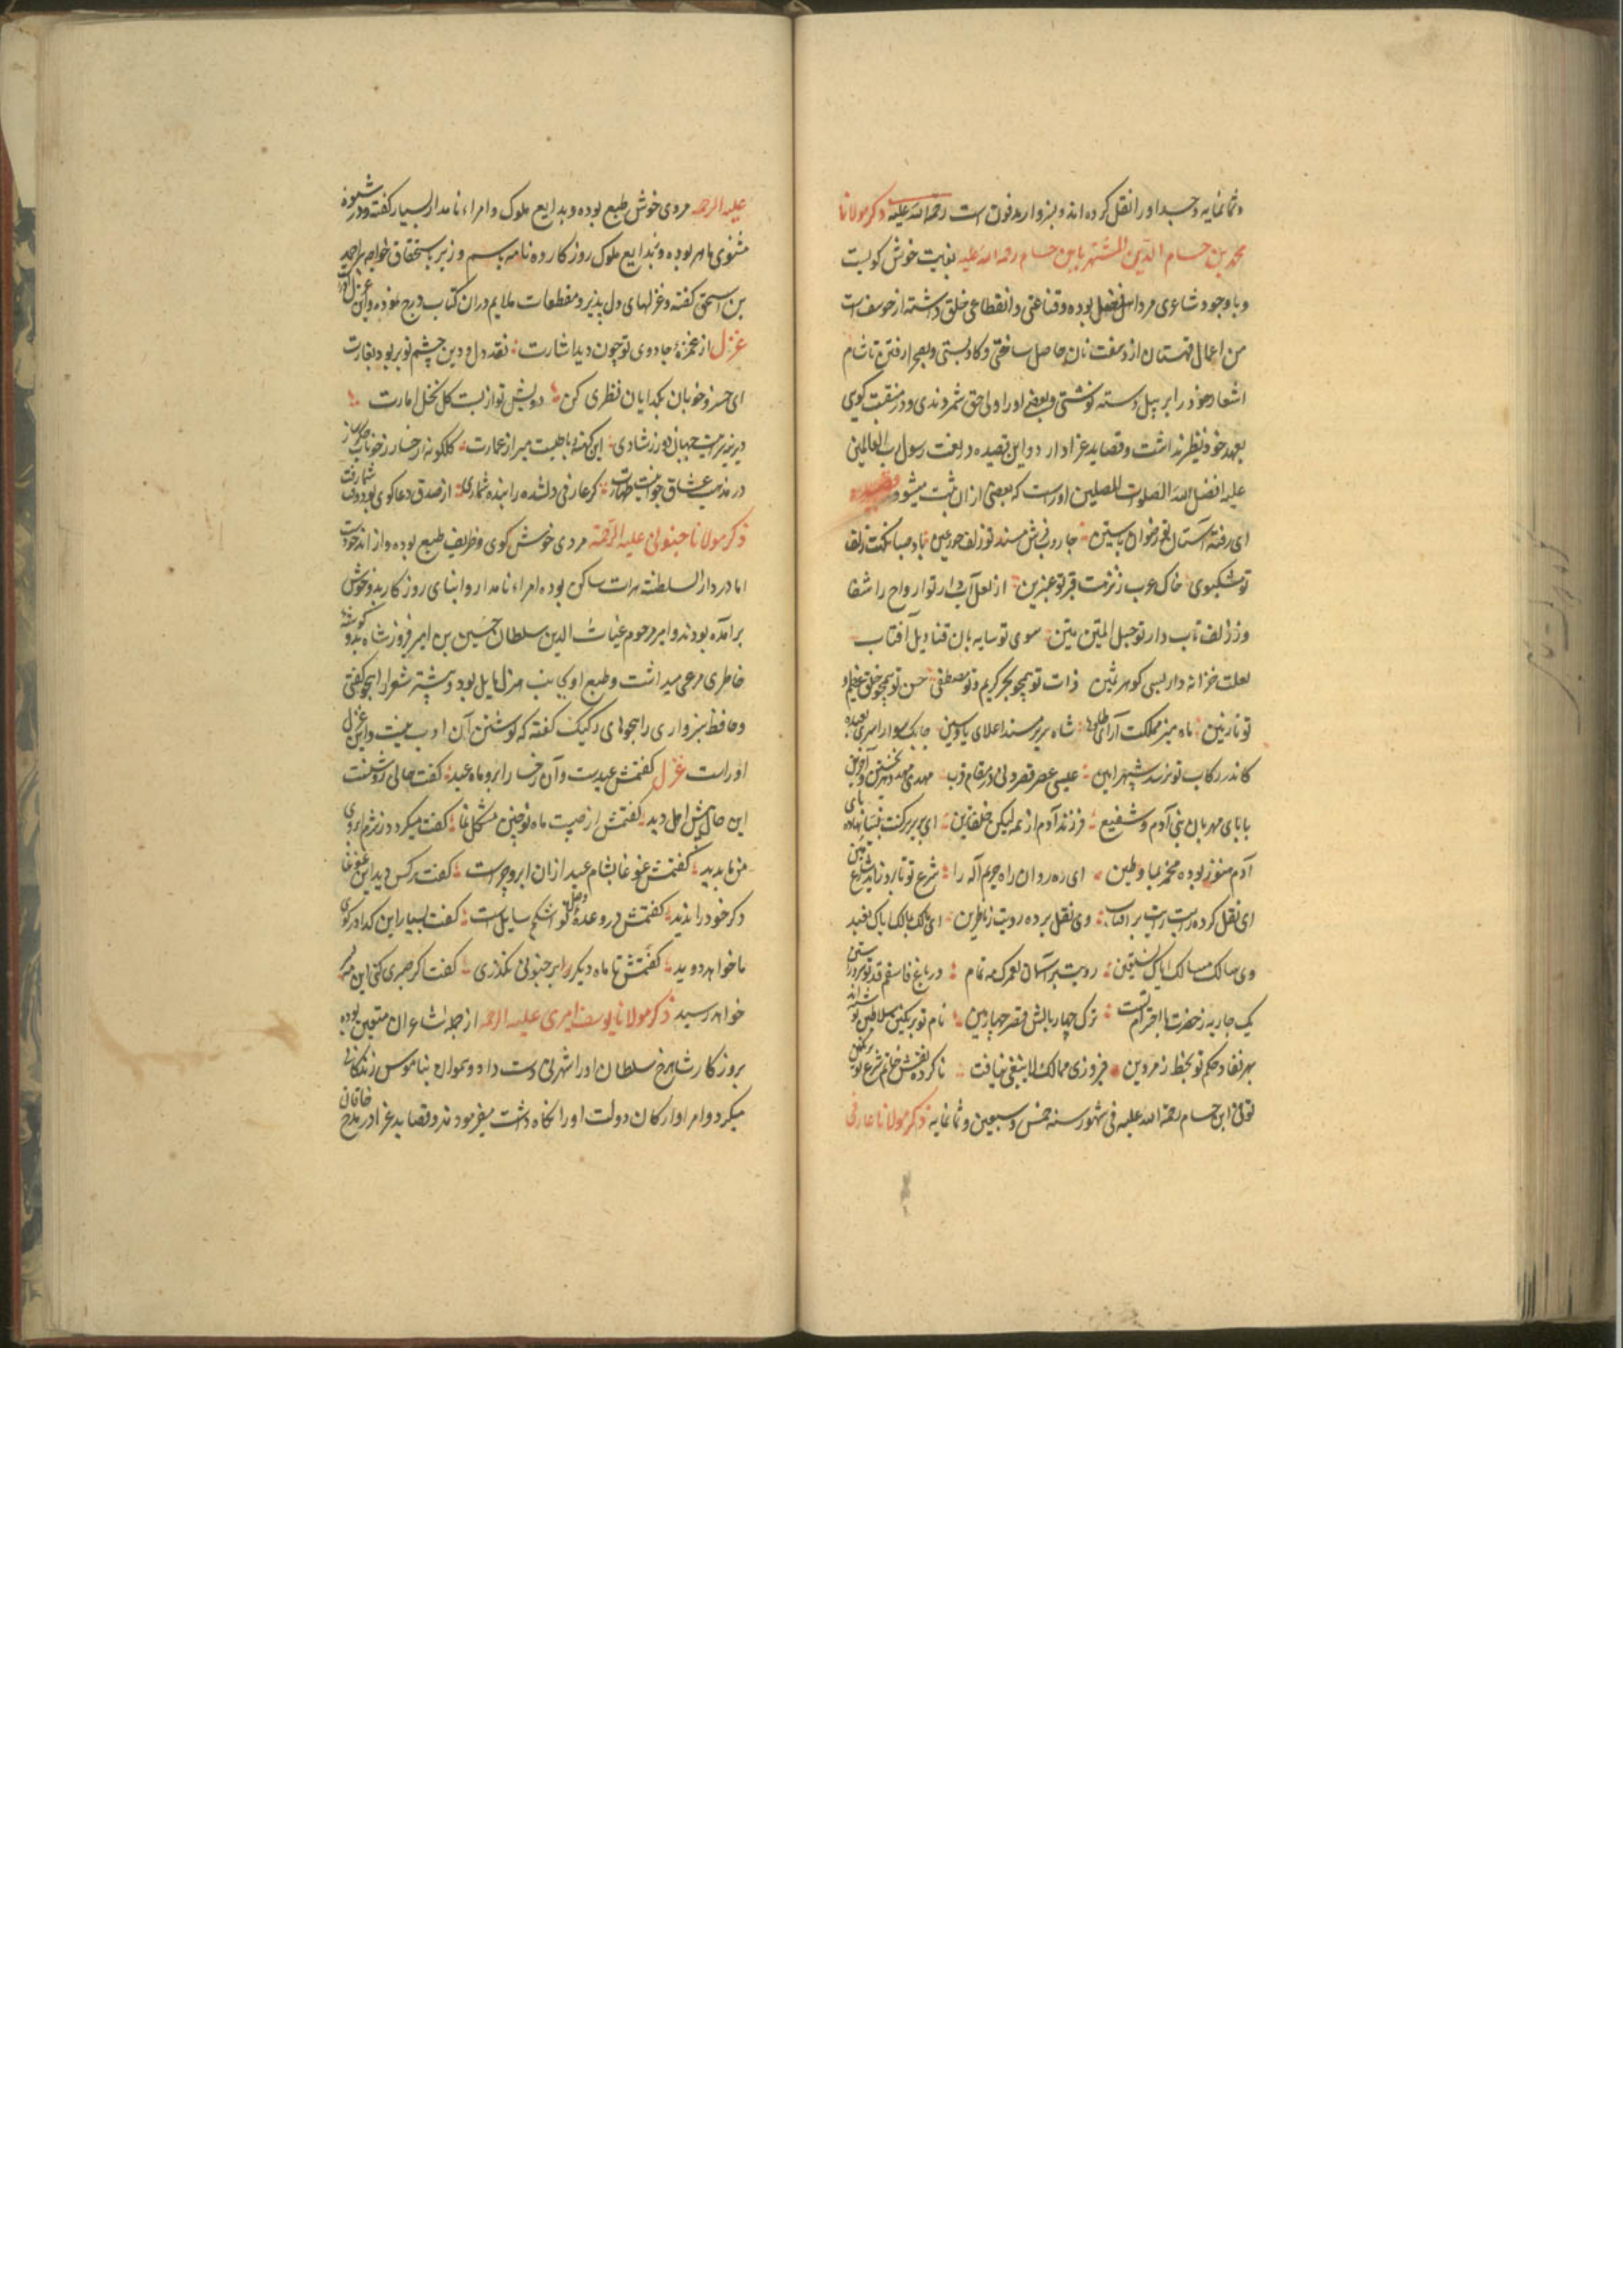 وثمانمایه وجسد او را نقل کرده‌اند و بسبزوار مدفون است رحمة الله علیه ذکر مولانا
محمد بن حسام الدین المشتهر بابن حسام رحمة الله علیه بغایت خوش کویست
و با وجود شاعری مردی اهل فضل بوده و قناعتی و انقطاعی از خلق داشته از خوسف است
من اعمال قهستان از دهقنت نان حاصل ساختی و کاو بستی و بصحرا رفتی تا شام
اشعار خود را بر بیل دسته نوشتی و بعضی او را ولی حق شمرده‌اندی و در منقبت کوی
بعهد خود نظیر نداشت و قصاید غرا دارد و این قصیده در نعت رسول رب العالمین
علیه افضل الصلوات المصلین اوراست که بعضی از ان ثبت میشود قصیده
ای رفته آستان تو رضوان بآستین جاروب فرش مسند تو زلف حور عین باد صبا نکهت زلف
تو مشکبوی خاک عرب ز نزهت قبر تو عنبرین از لعل آبدار تو ارواح را شفا
وز زلف تاب دار تو حبل المتین متین موی تو سایه بان قنادیل آفتاب
لعلت خزانه دار بسی کوهر ثمین ذات تو همچو بحر کریم و تو مصطفی حسن تو همچو خلق عظیم و
تو نازنین ماه منیر مملکت آرای طا و ها شاه سریر مسند اعلای یا و سین چابک سوار اسری بعبده
کاندر رکاب تو نرسد شهپر امین عیسی عصر قصر دنی در مقام قرب مهدی مهد و مهر نخستین و آخرین
بابای مهربان بنی آدم و شفیع فرزند آدم از همه لیکن خلفترین ای بر سریر کنت نبیا نهاده پای
آدم هنوز بوده مخمر بما و طین ای ره روان راه حریم آله را شرع تو تا بروز
ای نقل کرده رایت برافتاب وی نقل برده رویت ز ای مالک ایاک نعبد
وی سالک مسالک ایاک نستعین رویت بر آسمان لعمرک مه تمام در باغ فاستقم قد تو سرو راستین
یک جاریه ز حضرت با احترام تست ترک چهار بالش قصر چهارمین نام تو بر نکین سلاطین نوشته‌اند
بهر نفاد حکم تو بخط زمردین فیروزی ممالک لا ینبغی نیافت ناکرده نقش خاتم شرع تو بر نکین
توفی ابن حسام رحمة الله علیه فی شهور سنه خمس و سبعین و ثمانمایه ذکر مولانا عارفی
علیه الرحمه مردی خوش طبع بوده و بدایع ملوک و امراء نامدار بسیار کفته و در شیوه
مثنوی ماهر بوده و بدایع ملوک روزکار ده نامه باسم وزیر باستحقاق خواجه پیر احمد
بن اسحق کفته و غزلهای دل پذیر و مقطعات ملایم دران کتاب درج نموده و این غزل اوراست
غزل از غمزه جادوی تو چون دید اشارت نقد دل و دین چشم تو بربود بغارت
ای خسرو خوبان بکدایان نظری کن درویش نوازیست کل نخل امارت
در مذهب عشاق طهارت کر عارفی دلشده را بنده شماری از صدق دعا کوی بود
ذکر مولانا جنونی علیه الرحمة مردی خوش کوی و ظریف طبع بوده و از اندخودست
اما در دار السلطنه هرات ساکن بوده امراء نامدار و ابنای روزکار بدو خوش
برآمده بودند و امیر مرحوم غیاث الدین سلطان حسین بن امیر فیروز شاه بدو کوشه
خاطری مرعی میداشت و طبع او بجانب هزل مایل بود و بیشتر شعرا را هجو کفتی
و حافظ سبزواری را هجوهای رکیک کفته که نوشتن آن ادب نیست و این غزل
اوراست غزل کفتمش عیدست و آن رخ را برو ماه عید کفت حالی روشنست
این حال پیش اهل دید کفتمش از چیست ماه نو چنین مشکل نما کفت میکردد ز شرم ابروی
من ناپدید کفتمش غوغا بشام عید از ان ابرو چراست کفت هر کس دید این غوغا
دکر خود را ندید کفتمش در وعدهٔ وصل تو اشکم سایل است کفت بسیار این کدا در کوی
ما خواهد دوید کفتمش تا ماه دیکر بر جنونی نکذری کفت اکر صبری کنی این مه
خواهد رسید ذکر مولانا یوسف امیری علیه الرحمه از جمله شاعران متعین بوده
بروزکار شاهرخ سلطان او را شهرتی دست داد و بناموس زندکانی
میکرد و امرا و ارکان دولت او را نکاه داشت میفرمودند و قصاید غرا در مدح خاقان